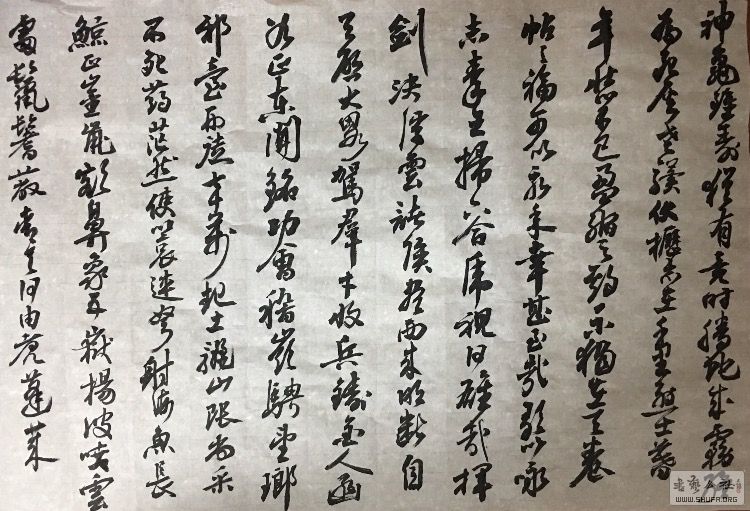 神龜雖壽猶有竟時騰蛇乘霧
為灰老驥伏櫪志在千里烈士暮
年壯心不已盈縮之期不獨在天養
怡之福可以永年幸甚至哉歌以詠
志秦王掃六合虎視何雄哉揮
劍決浮雲諸侯盡西來明斷自
天啟大略駕群才收兵鑄金人函
谷正東開銘功會稽嶺騁望瑯
邪臺刑徒七十萬起土驪山隈尚采
不死藥茫然使心哀連弩射海魚長
鯨正崔嵬額鼻象五嶽揚波噴雲
雷鬣鬐蔽青天何由睹蓬萊
WWW.SHUFA.ORG